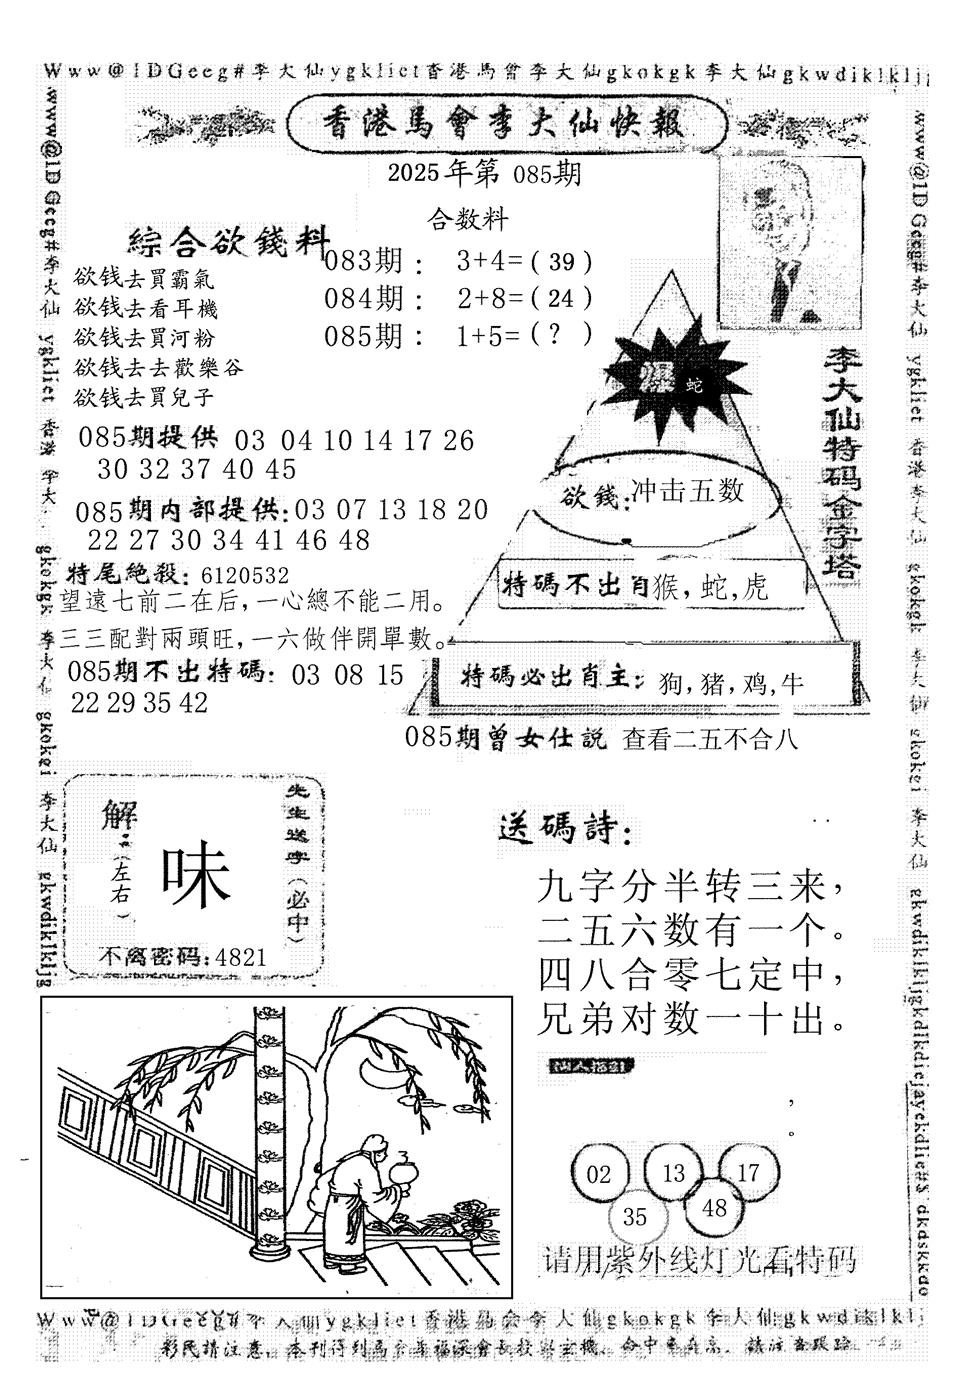 Www@1DGeeg#李大仙ygkliet香港馬會李大仙gkokgk李大仙gkwdiklkljg
香港馬會李大仙快報
2025年第 085期
合数料
綜合欲錢料
欲钱去買霸氣
欲钱去看耳機
欲钱去買河粉
欲钱去去歡樂谷
欲钱去買兒子
083期： 3+4=( 39 )
084期： 2+8=( 24 )
085期： 1+5=( ? )
085期提供 03 04 10 14 17 26
30 32 37 40 45
085期内部提供:03 07 13 18 20
22 27 30 34 41 46 48
特尾絶殺: 6120532
望遠七前二在后，一心總不能二用。
三三配對兩頭旺，一六做伴開單數。
085期不出特碼: 03 08 15
22 29 35 42
李大仙特码金字塔
爆 蛇
欲錢:冲击五数
特碼不出肖猴，蛇，虎
特碼必出肖主: 狗，猪，鸡，牛
085期曾女仕説 查看二五不合八
先生送字（必中）
解:（左右）
味
不离密码:4821
送碼詩:
九字分半转三来，
二五六数有一个。
四八合零七定中，
兄弟对数一十出。
，
。
02 13 17
35 48
请用紫外线灯光看特码
www@1DGeeg#李大仙 ygkliet 香港 李大 gkokgk 李大仙 gkokei 李大仙 gkwdiklkljg
www@1DGeeg#李大仙 ygkliet 香港李大仙 gkokgk 李大仙 gkokei 李大仙 gkwdiklkljgkdlkdiejayekdlie#$ dkdskkdo
Www@1DGeeg#李大仙ygkliet香港馬会李大仙gkokgk李大仙gkwdiklklj
彩民請注意，本刊得到馬会